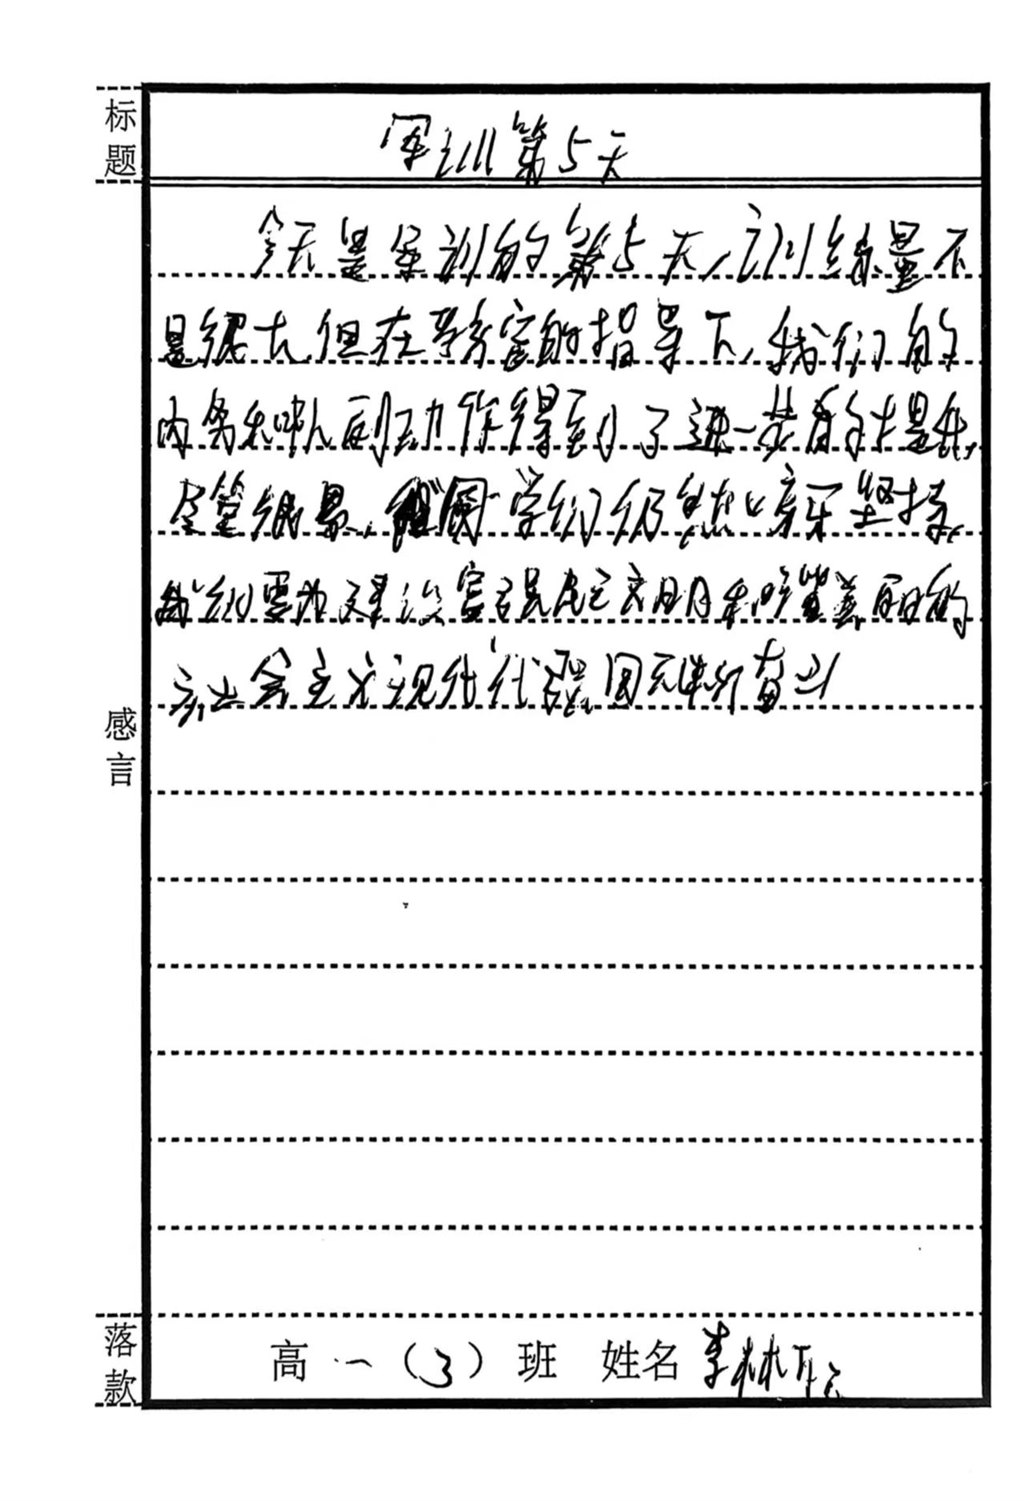 标题
军训第5天
今天是军训的第5天,训练量不
是很大,但在教官的指导下,我们的
内务和队列动作得到了进一步的提升,
尽管很累,但同学们仍然咬牙坚持,
我们要为建设富强民主文明和谐美丽的
社会主义现代化强国而奋斗
感言
落款
高一(3)班 姓名 李林